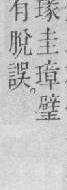 瑑圭璋璧
有脫誤。